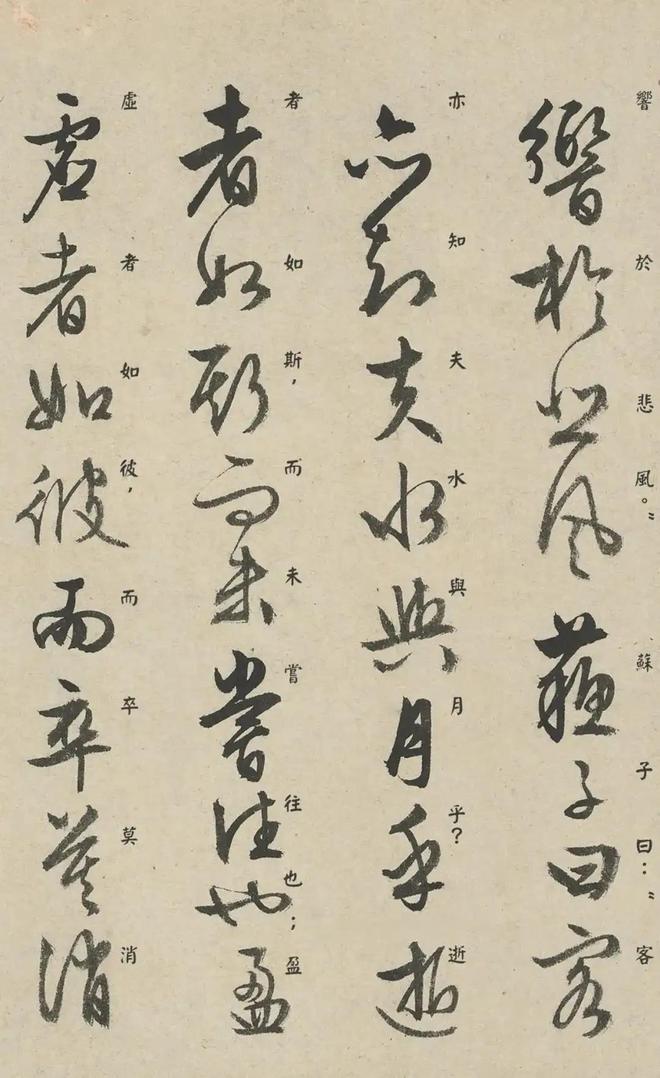 響於悲風。”蘇子曰：“客
響於悲風蘇子曰客
亦知夫水與月乎？逝
亦知夫水與月乎逝
者如斯，而未嘗往也；盈
者如斯而未嘗往也盈
虛者如彼，而卒莫消
虛者如彼而卒莫消